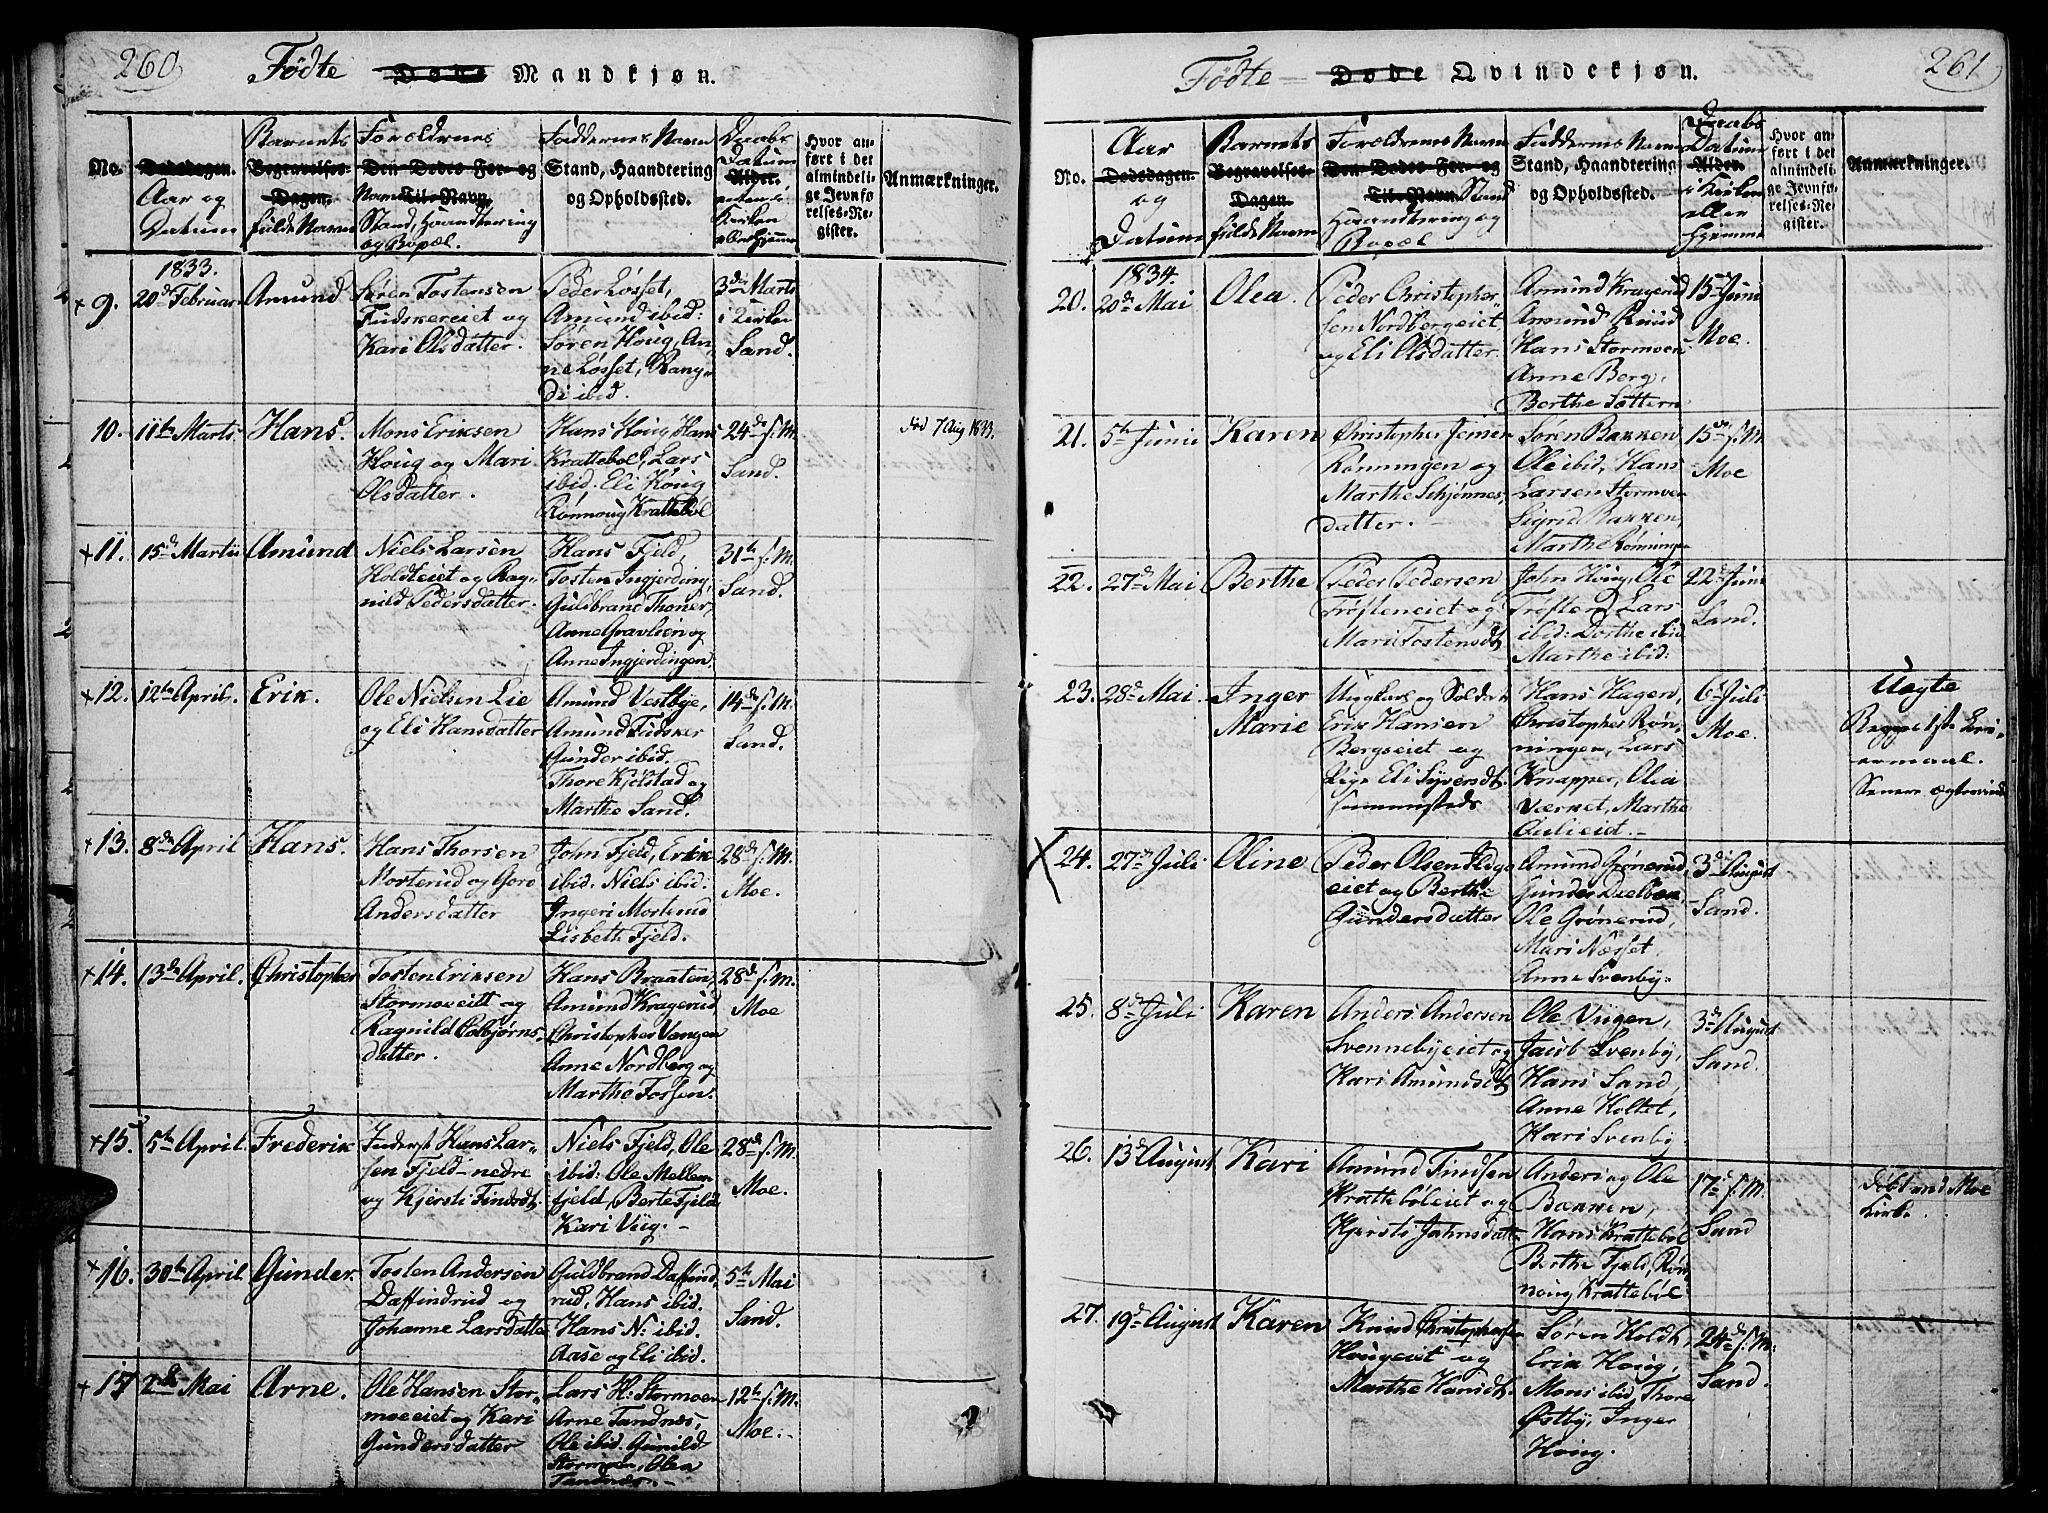 260
Fødte Døde Mandkjøn.
No.
Dødsdagen.
Aar og
Datum
Barnets
Begravelses-
Dagen.
fulde Navn
Forældrenes
Den Dødes For- og
Navn Til-Navn,
Stand, Haandtering
og Bopæl.
Faddernes Navn
Stand, Haandtering
og Opholdssted.
Daabs
Datum
Alder.
Kirken
eller Hjemme
Hvor an-
ført i det
almindeli-
ge Jevnfø-
relses-Re-
gister.
Anmærkninger.
1833.
9. 20d Februar
Amund
Søren Tostensen
Fudskereiet og
Kari Olsdatter.
Peder Løsset,
Amund ibid:
Søren Houg, An-
ne Løsset, Rang-
di ibid.
3d Marts
i Kirken
Sand.
10. 11te Marts
Hans.
Mons Eriksen
Houg og Mari
Olsdatter.
Hans Houg, Hans
Krattebøl, Lars
ibid. Eli Houg
Rønnoug Krattebøl
24d s. M.
Sand.
død 7 Aug 1833.
11. 15d Martii
Amund
Niels Larsen
Holdteiet og Rag-
nild Pedersdatter.
Hans Fjeld,
Tosten Ingjerding,
Guldbrand Thoner,
Anne Gravlien og
Anne Ingjerdingen
31te s. M.
Sand.
12. 12te April.
Erik.
Ole Nielsen Lie
og Eli Hansdatter
Amund Vestbye,
Amund Fudsker
Gunder ibid.
Thore Kjølstad og
Marthe Sand.
14d s. M.
Sand.
13. 8de April
Hans.
Hans Thorsen
Morterud og Goro
Andersdatter
John Fjeld, Erik
ibid. Niels ibid.
Ingeri Morterud
Lisbeth Fjeld.
28d s. M.
Moe.
14. 13d April.
Christopher
Tosten Eriksen
Stormoeiet og
Ragnild Esbjørns-
datter.
Hans Braaten,
Amund Kragerud
Christopher Vangen
Anne Nordberg og
Marthe Fossen.
28d s. M.
Moe
15. 5te April.
Frederik
Inderst Hans Lar-
sen Fjeld nedre
og Kjersti Findsdt.
Niels Fjeld, Ole
ibid: Ole Mellem-
fjeld, Berte Fjeld
Kari Viig.
28d s. M.
Moe.
16. 30te April
Gunder.
Tosten Andersen
Daffindrud og
Johanne Larsdatter
Guldbrand Daffind-
rud, Hans ibid.
Hans N: ibid.
Aase og Eli ibid.
5te Mai
Sand.
17 2de Mai
Arne.
Ole Hansen Stor-
moeeiet og Kari
Gundersdatter
Lars H. Stormoen
Arne Tandnæs,
Ole ibid. Gunild
Stormoen, Olea
Tandnæs.
12te s. M.
Moe.
261
Fødte Døde Qvindekjøn.
No.
Aar
Dødsdagen.
og
Datum
Barnets
Begravelses-
Dagen.
fulde Navn
Forældrenes Navn
Den Dødes For- og
Til-Navn, Stand
Haandtering og
Bopæl
Faddernes Navn
Stand, Haandtering
og Opholdssted.
Daabs
Datum
Alder.
i Kirken
eller
Hjemme
Hvor an-
ført i det
almindeli-
ge Jevnfø-
relses-Re-
gister.
Anmærkninger.
1834.
20. 20de Mai
Olea.
Peder Christopher-
sen Nordbergeiet
og Eli Olsdatter.
Amund Kragerud
Amund Ruud
Hans Stormoen
Anne Berg,
Berthe Sættern
15de Juni
Moe.
21. 5te Junii
Karen
Christopher Jensen
Rønningen og
Marthe Schjønnes-
datter.
Søren Bakken
Ole ibid, Hans
Larsen Stormoen
Sigrid Bakken,
Marthe Rønningen
15de s. M.
Moe
22. 27d Mai
Berthe
Peder Pedersen
Trøfteneiet og
Mari Tostensdt.
John Houg, Ole
Trøften, Lars
ibid: Dorthe ibid
Marthe ibid:
22d Juni
Sand.
23. 28d Mai.
Inger
Marie
Ungkarl og Soldat
Erik Hansen
Bergseiet og
Pige Eli Syversdt.
sammesteds
Hans Hagen,
Christopher Røn-
ningen, Lars
Knapper, Olea
Værket, Marthe
Julieiet.
6te Juli
Moe.
Uægte
Begges 1ste Lei-
ermaal.
24. 27de Juli
Oline
Peder Olsen
eiet og Berthe
Gundersdatter
Amund Grønerud,
Gunder
Ole Grønerud
Mari Næsset
Anne Svenby.
3d August
Sand.
25. 8de Juli
Karen
Anders Andersen
Svennebyeiet og
Kari Amundsdt
Ole Viigen,
Jacob Svenby,
Hans Sand,
Anne Holtet,
Kari Svenby.
3d August
Sand.
26. 13d August
Kari
Amund Findsen
Kratteboleiet og
Kjersti Johnsdatter
Anders og Ole
Bakken,
Hans Krattebøl
Berthe Fjeld, Røn-
noug Krattebøl
17d s. M.
Sand
døbt ved Moe
Kirke
27. 19d August
Karen
Knud Christophersen
Hougeiet og
Marthe Hansdt.
Søren Holdt,
Erik Houg,
Mons ibid, Thore
Østby, Inger
Houg.
24d s. M.
Sand.